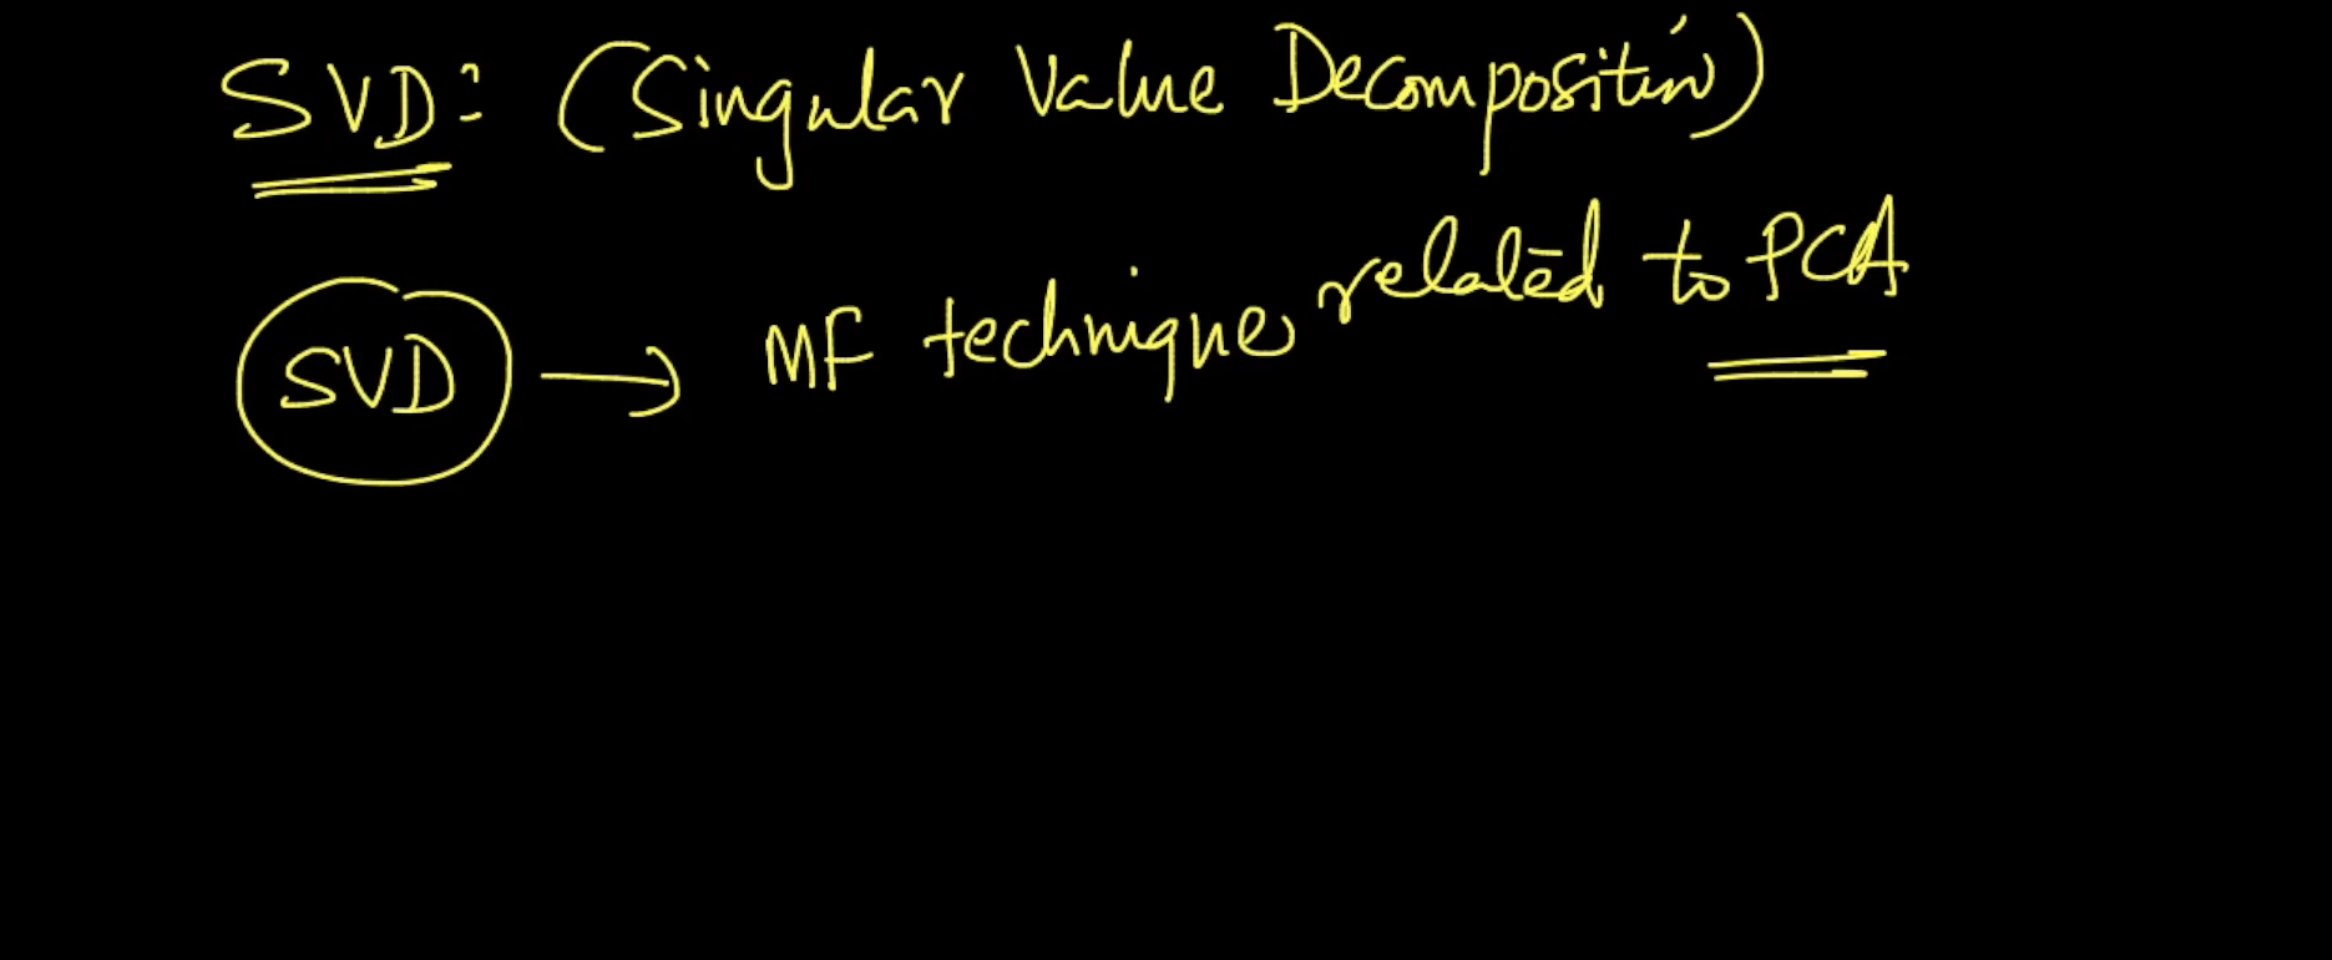 SVD: (Singular Value Decomposition)
SVD → MF technique related to PCA